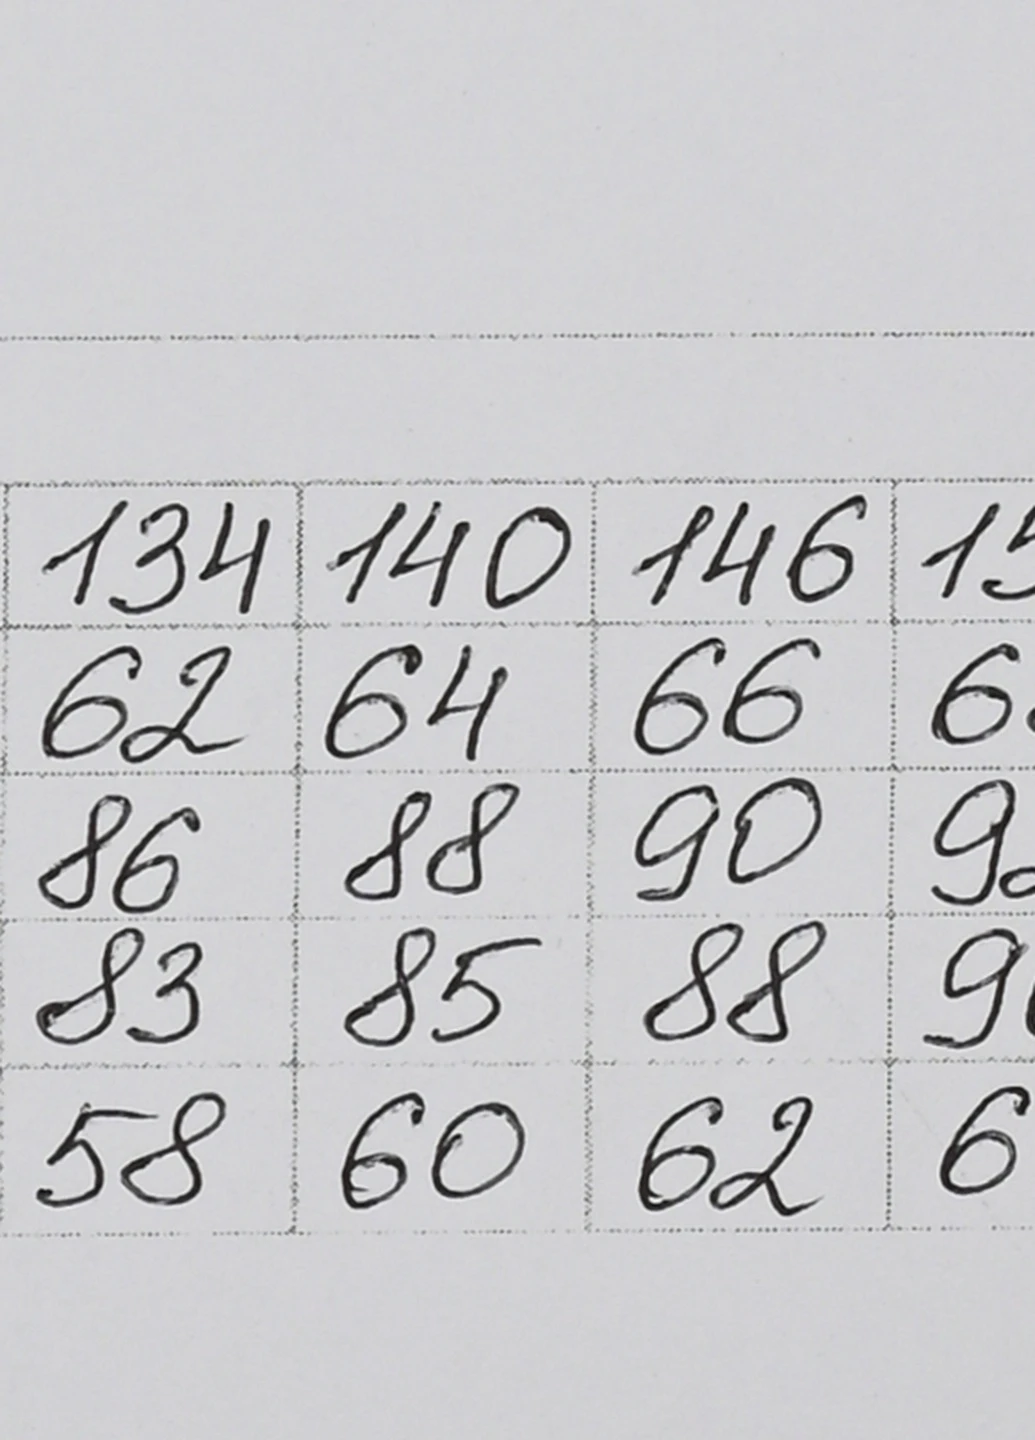 134 140 146 15
62 64 66 6
86 88 90 92
83 85 88 9
58 60 62 6